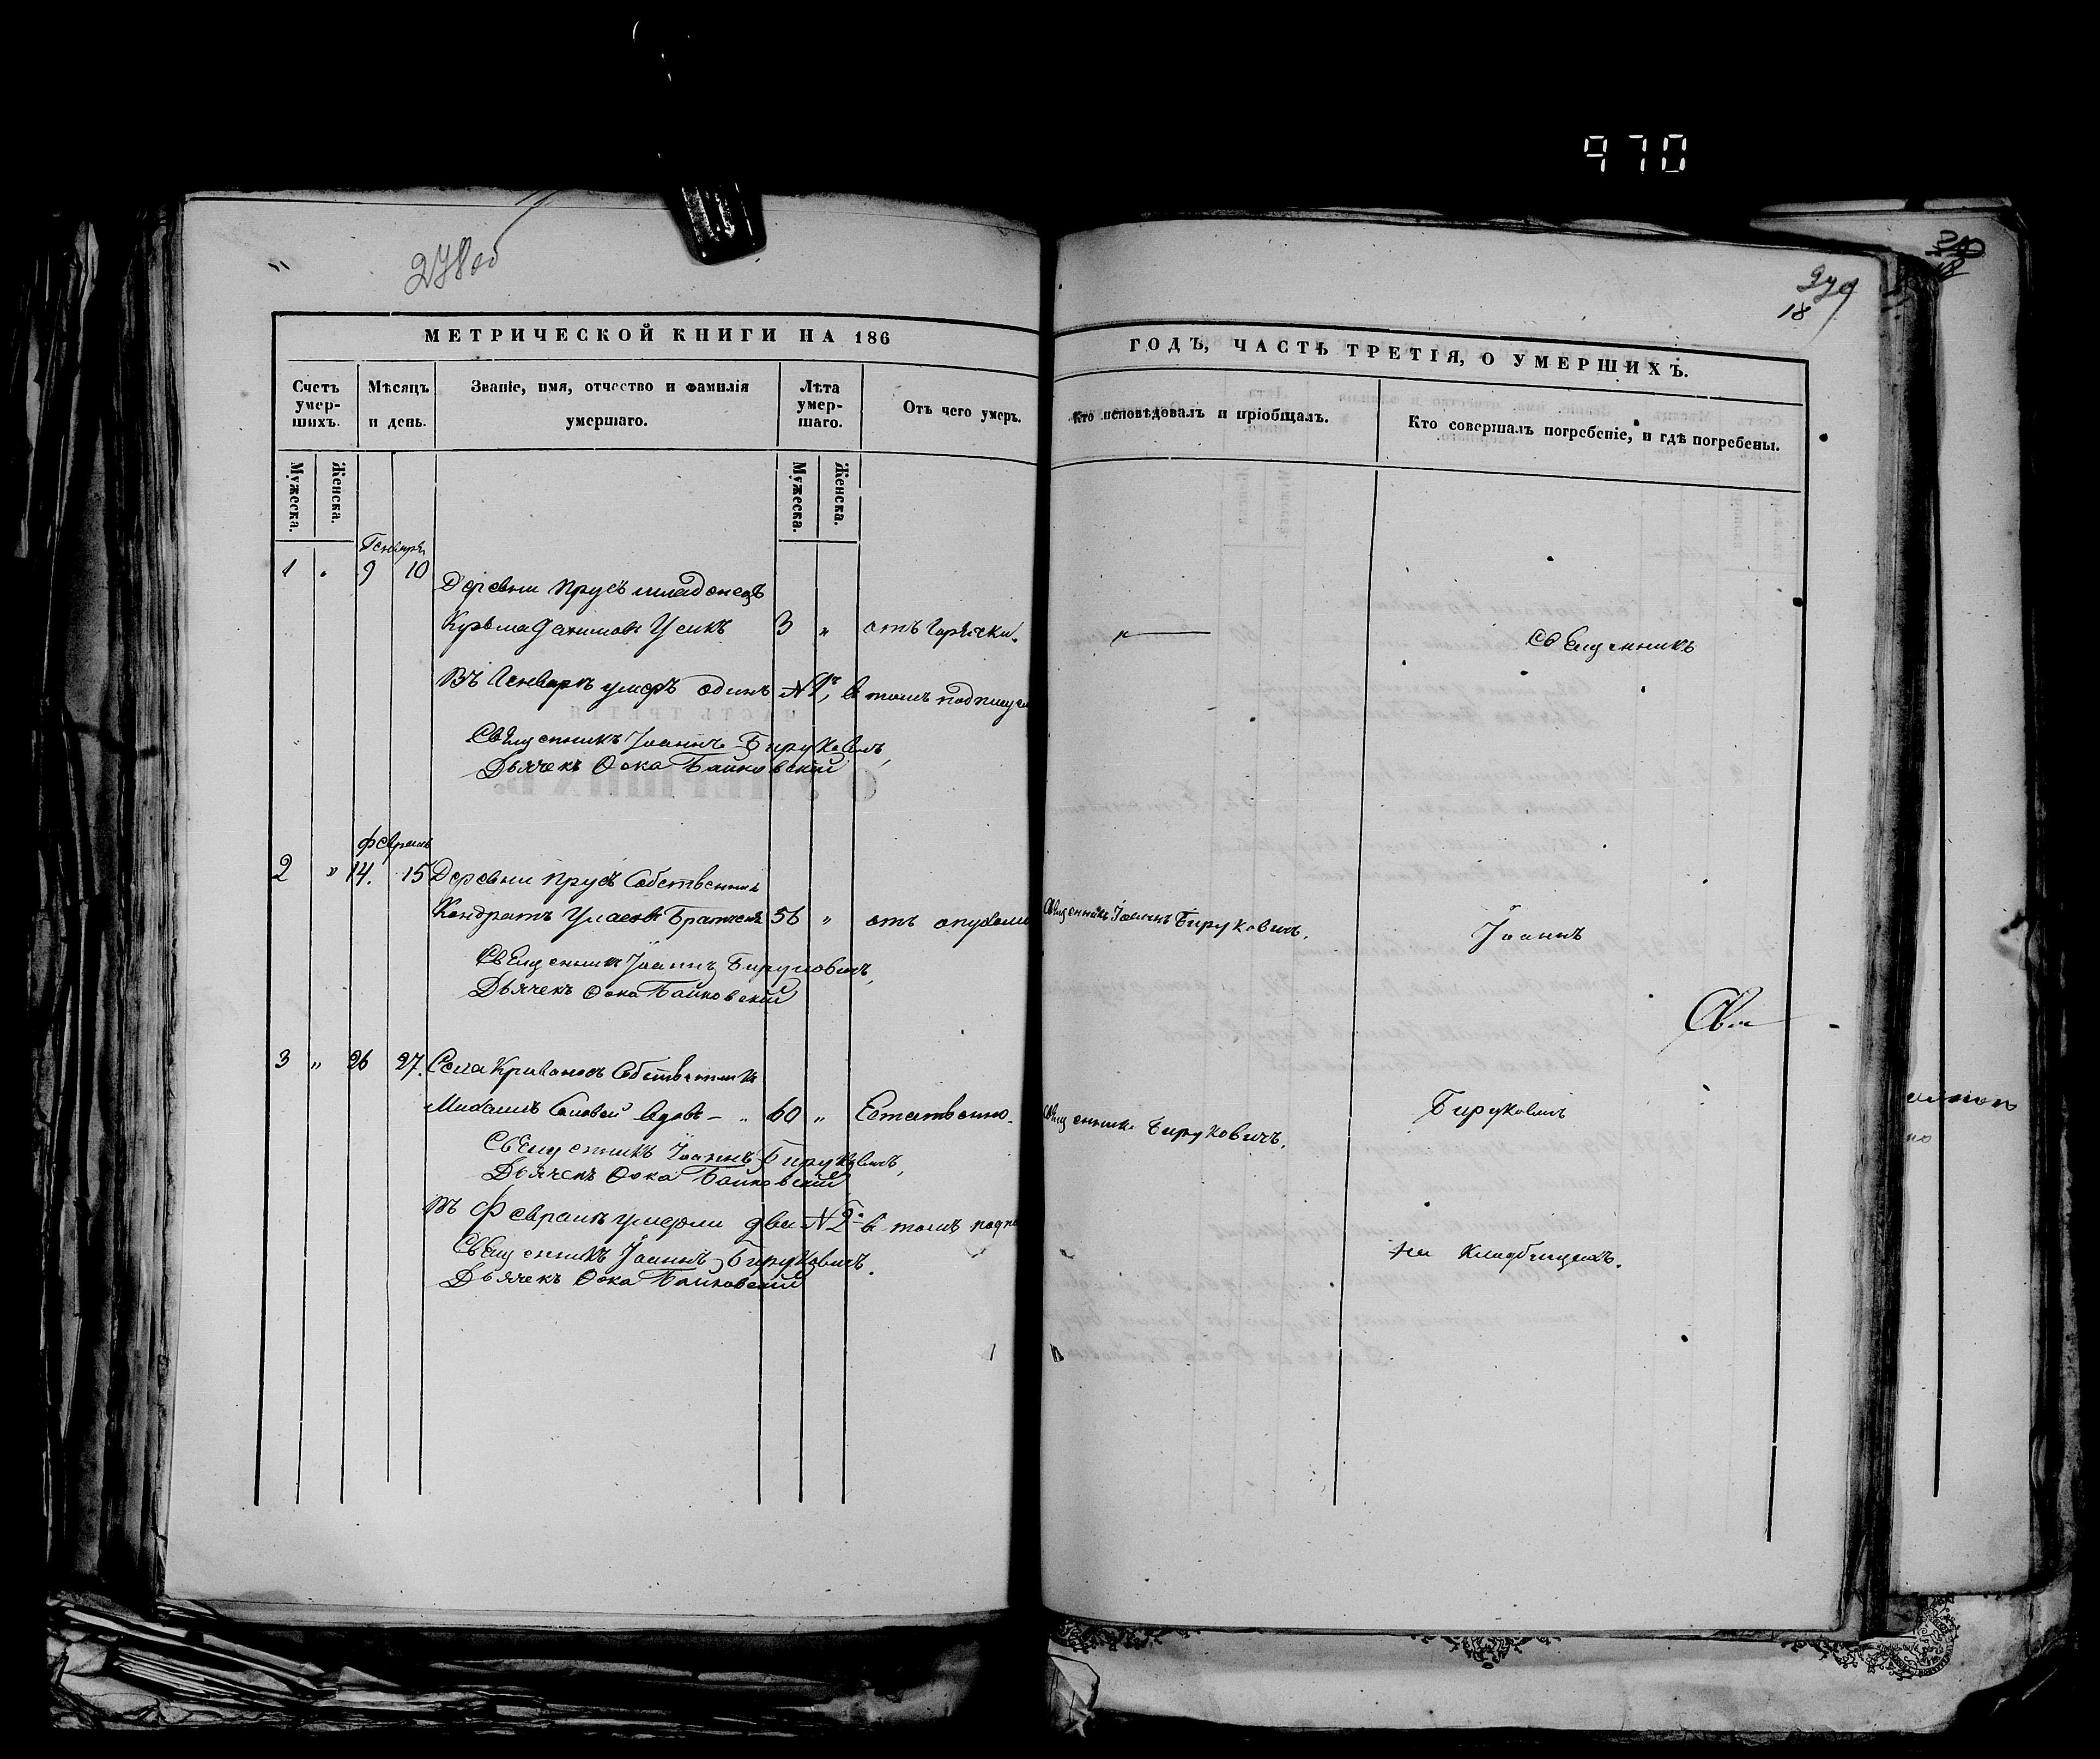 970
278 об
279
18
МЕТРИЧЕСКОЙ КНИГИ НА 186
ГОДЪ, ЧАСТЬ ТРЕТІЯ, О УМЕРШИХЪ.
Счетъ умер-шихъ.
Мѣсяцъ и день.
Званіе, имя, отчество и фамилія умершаго.
Лѣта умер-шаго.
Отъ чего умеръ.
Кто исповѣдовалъ и пріобщалъ.
Кто совершалъ погребеніе, и гдѣ погребены.
Мужеска.
Женска.
Мужеска.
Женска.
Генварь
1 „ 9 10 Деревни Прусъ младенецъ
Усикъ 3 „ отъ горячки.
Священникъ
Въ Генваре умеръ одинъ №1, в томъ подпису
Священникъ Іоаннъ Бируковичъ,
Дьячекъ Ѳока Байковскій
Февраль
2 „ 14. 15 Деревни Прусъ Собственникъ
Кондратъ Власовъ 56 „ отъ опухоли Священникъ Іоаннъ Бируковичъ.
Іоаннъ
Священникъ Іоаннъ Бируковичъ,
Дьячекъ Ѳока Байковскій
3 „ 26 27. Села Кривоносъ Собственникъ
60 „ Естественно. Священникъ Бируковичъ.
Бируковичъ
Священникъ Іоаннъ Бируковичъ,
Дьячекъ Ѳока Байковскій
Въ Феврале умерли два №2 в томъ подпи
Священникъ Іоаннъ Бируковичъ.
Дьячекъ Ѳока Байковскій
на кладбищахъ.